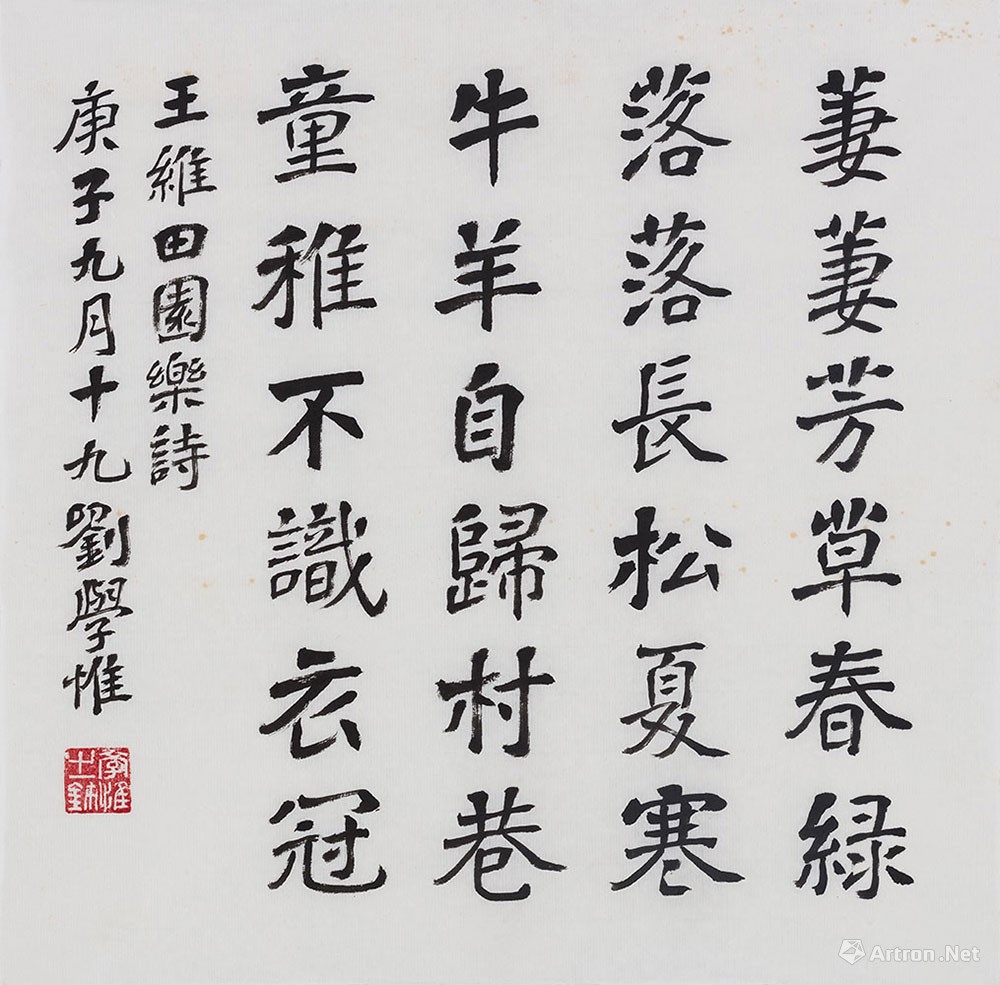 萋萋芳草春緑
落落長松夏寒
牛羊自歸村巷
童稚不識衣冠
王維田園樂詩
庚子九月十九劉學惟
Artron.Net